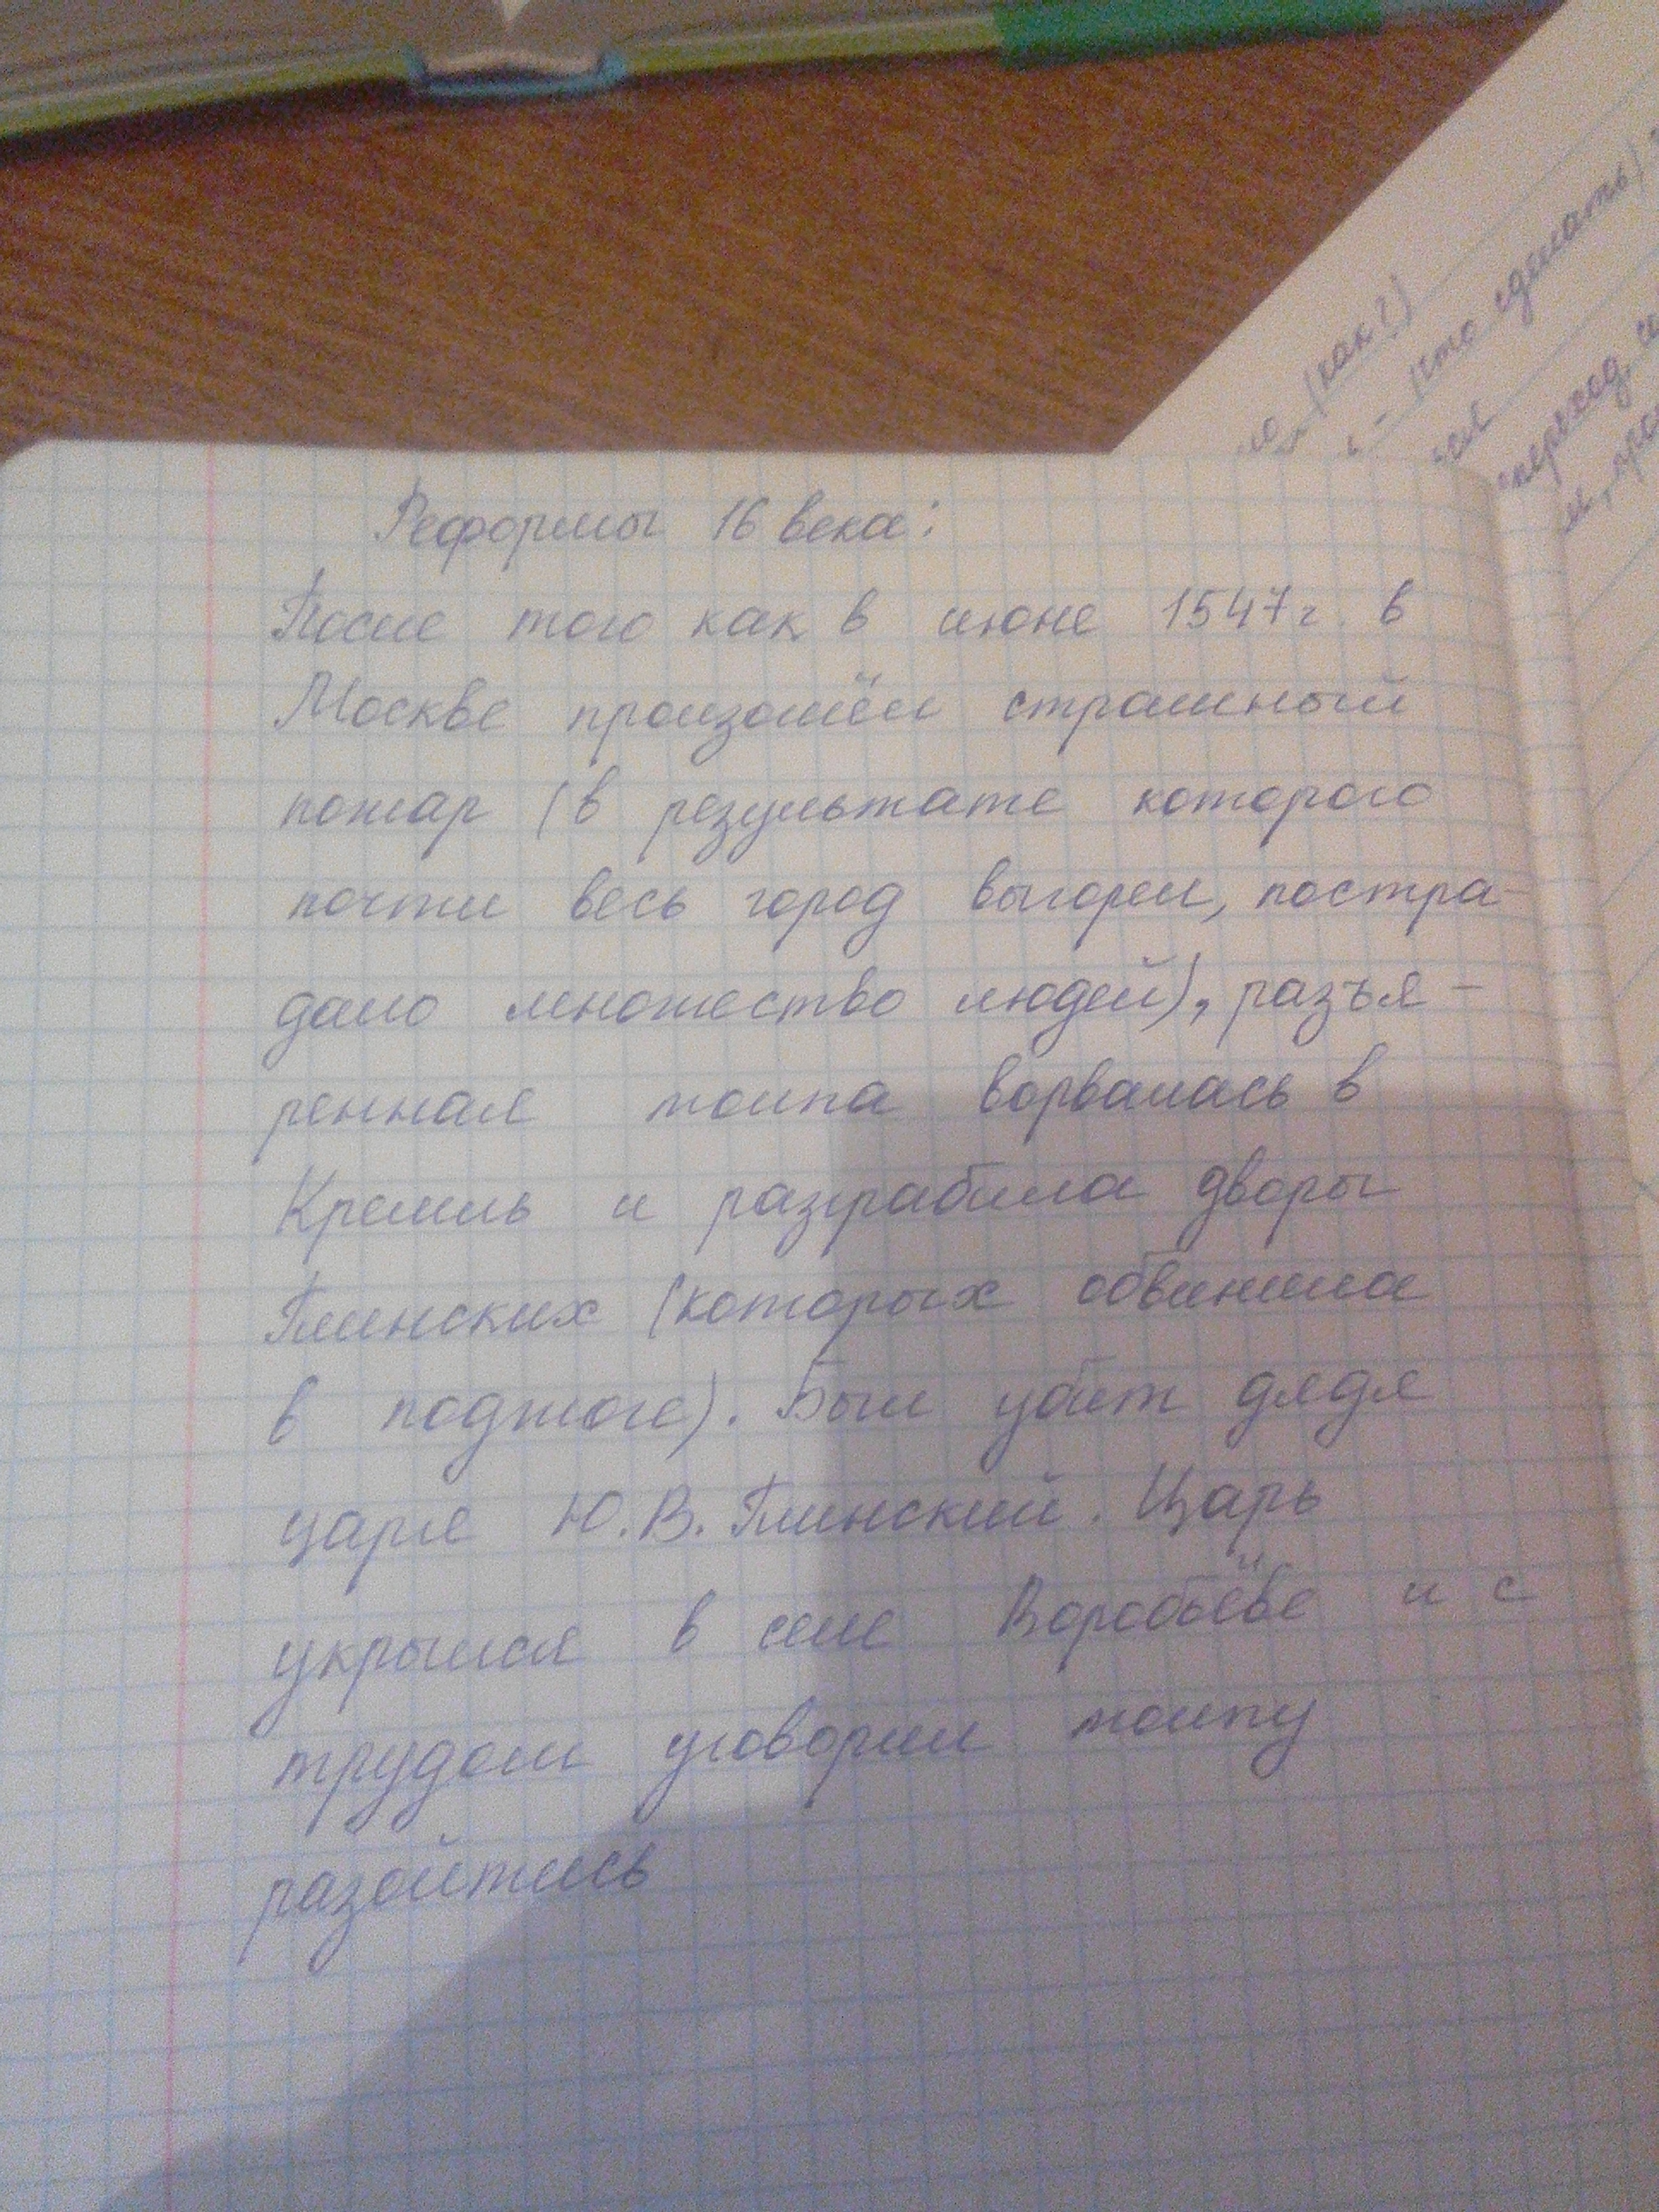 Реформы 16 века:
После того как в июне 1547 г. в
Москве произошёл страшный
пожар (в результате которого
почти весь город выгорел, постра-
дало множество людей), разъя-
ренная толпа ворвалась в
Кремль и разграбила дворы
Глинских (которых обвинила
в поджоге). Был убит дядя
царя Ю.В. Глинский. Царь
укрылся в селе Воробьёве и с
трудом уговорил толпу
разойтись
(как?)
- (что сделать)
переход